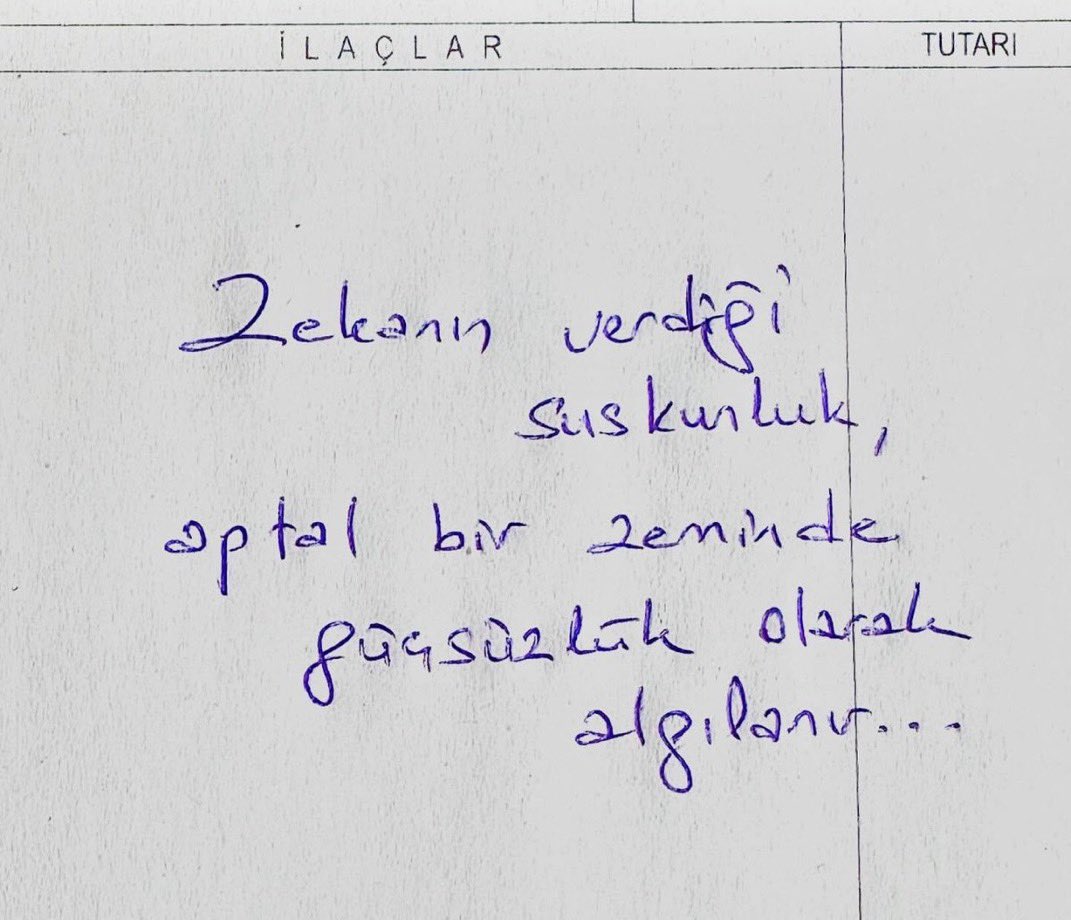 İLAÇLAR TUTARI
Zekanın verdiği
suskunluk,
aptal bir zeminde
güçsüzlük olarak
algılanır...